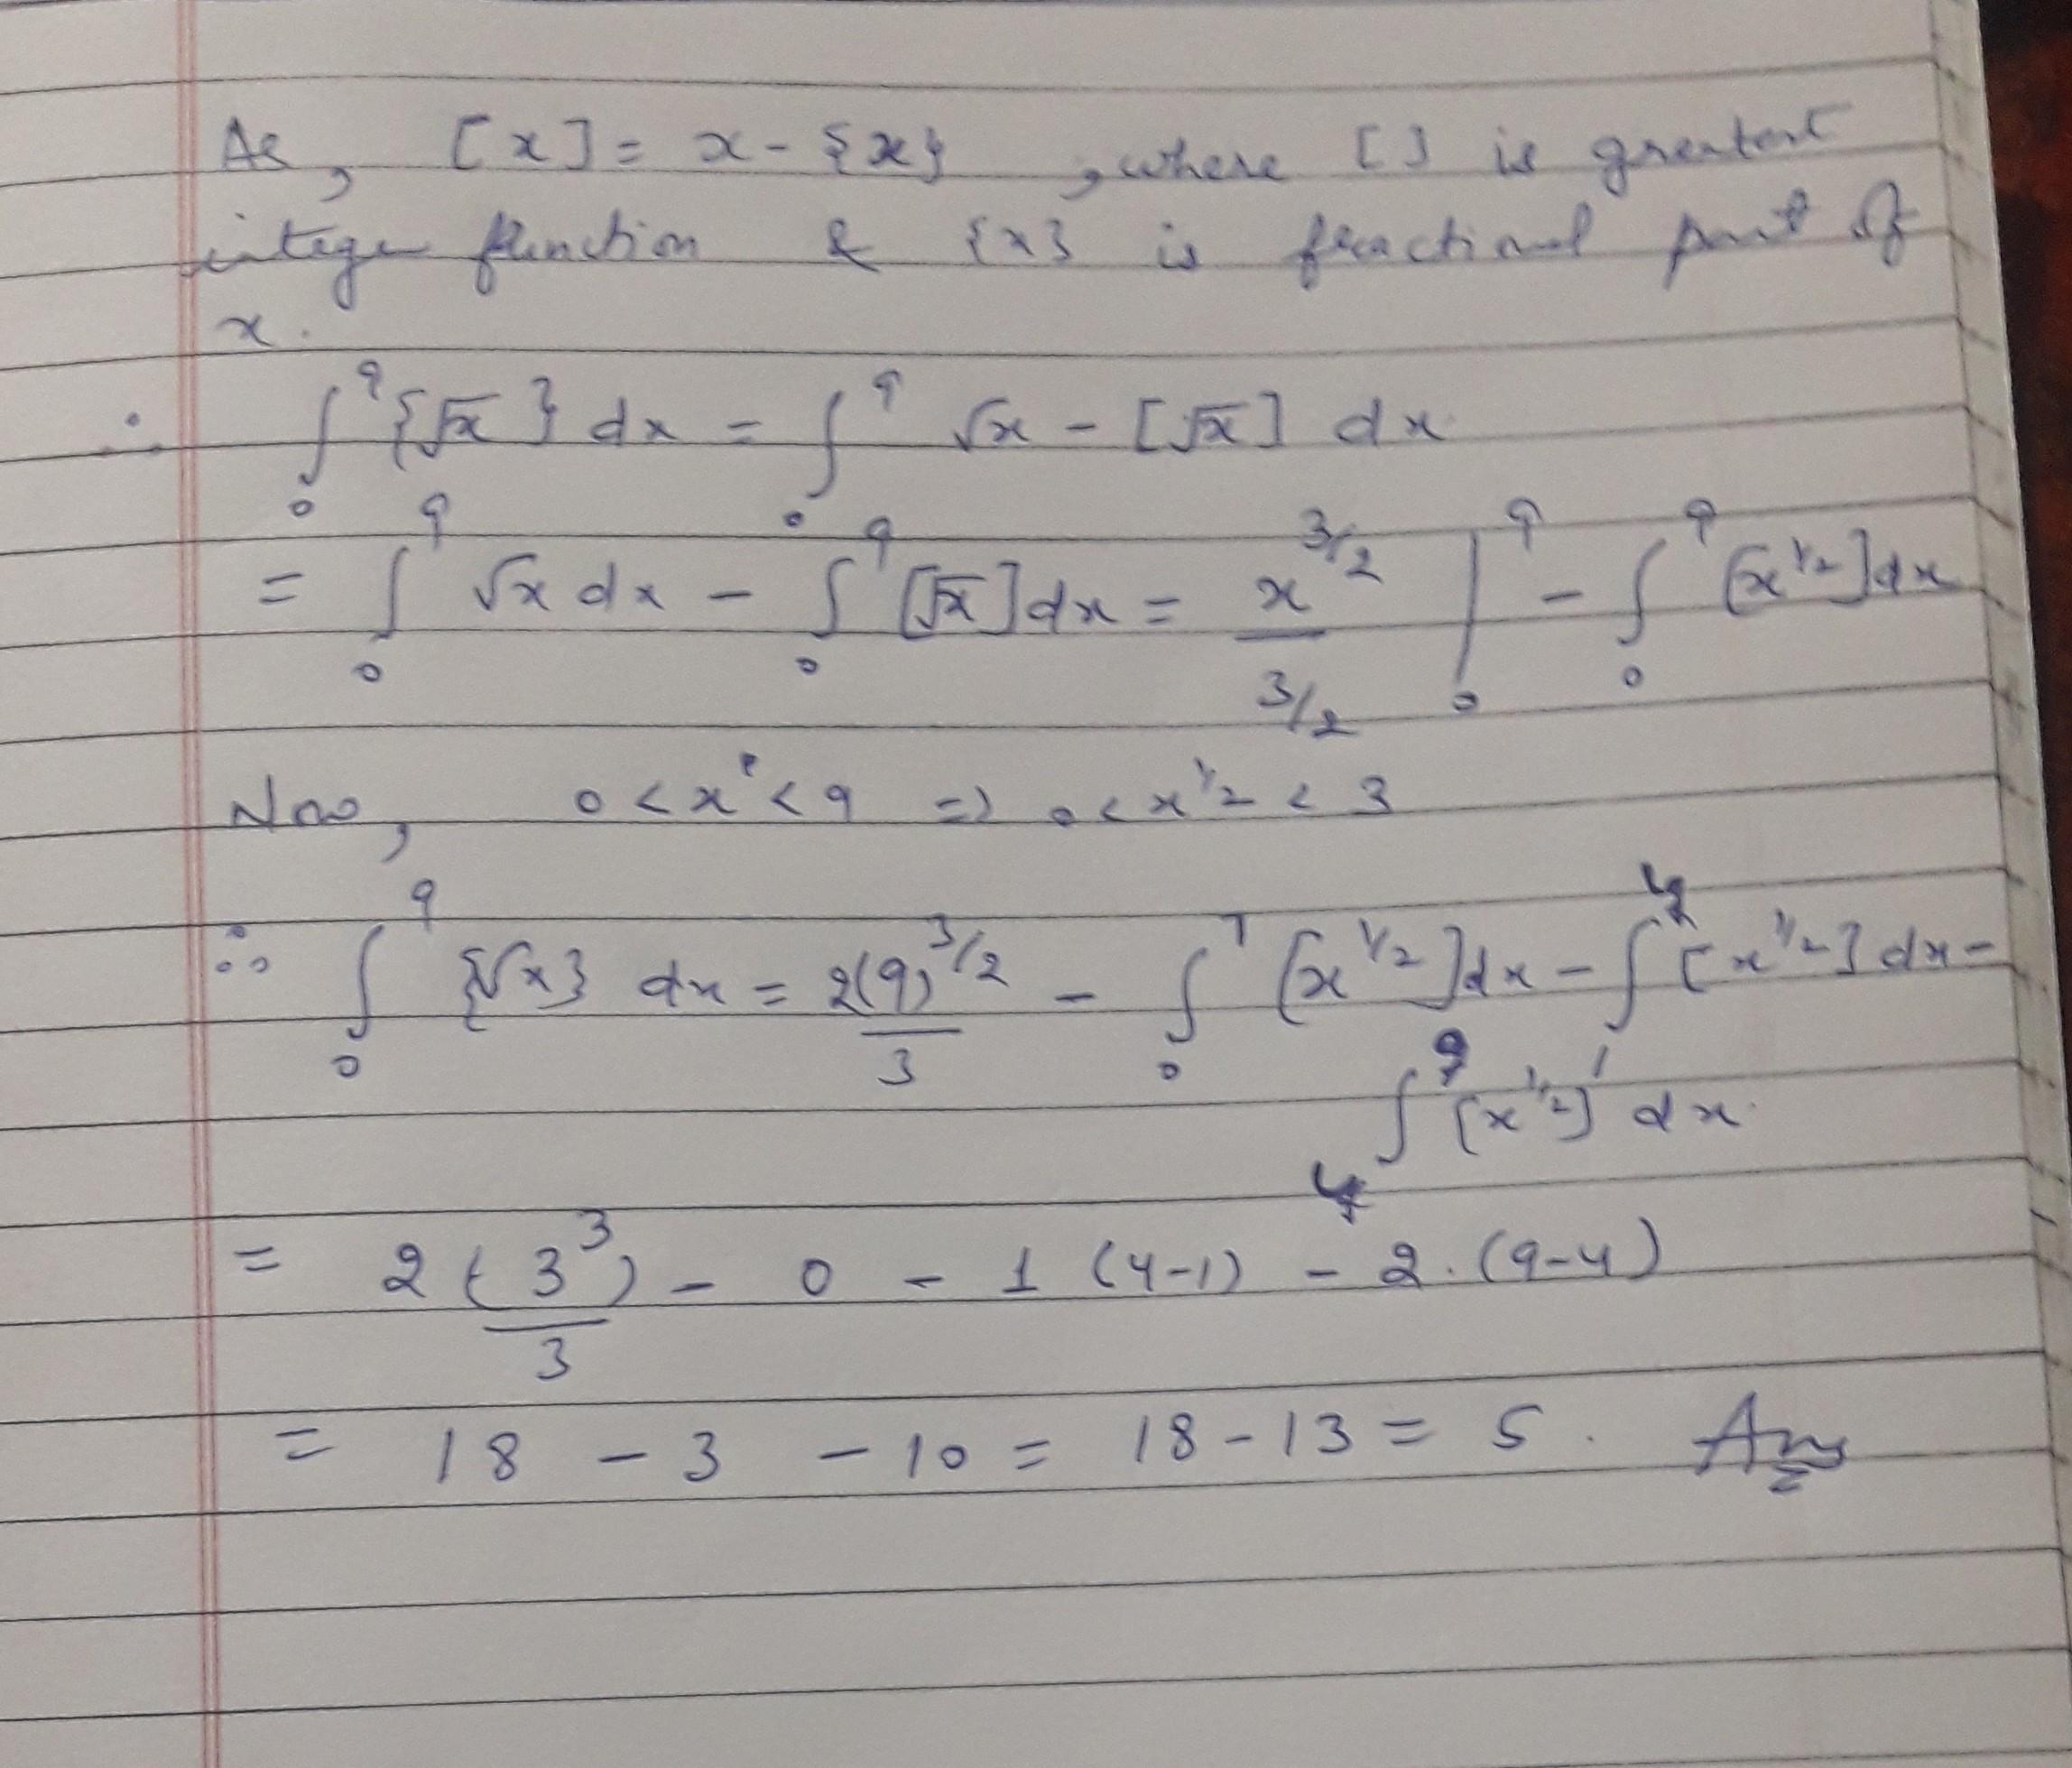 As, [x] = x - {x}, where [] is greatest
integer function & {x} is fractional part of
x.
∴ ∫₀⁹ {√x} dx = ∫₀⁹ √x - [√x] dx
= ∫₀⁹ √x dx - ∫₀⁹ [√x] dx = x^(3/2) / (3/2) |₀⁹ - ∫₀⁹ [x^(1/2)] dx
Now, 0 < x < 9 => 0 < x^(1/2) < 3
∴ ∫₀⁹ {√x} dx = 2(9)^(3/2) / 3 - ∫₀¹ [x^(1/2)] dx - ∫₁⁴ [x^(1/2)] dx -
∫₄⁹ [x^(1/2)] dx.
= 2 (3³) / 3 - 0 - 1 (4-1) - 2.(9-4)
= 18 - 3 - 10 = 18 - 13 = 5. Ans